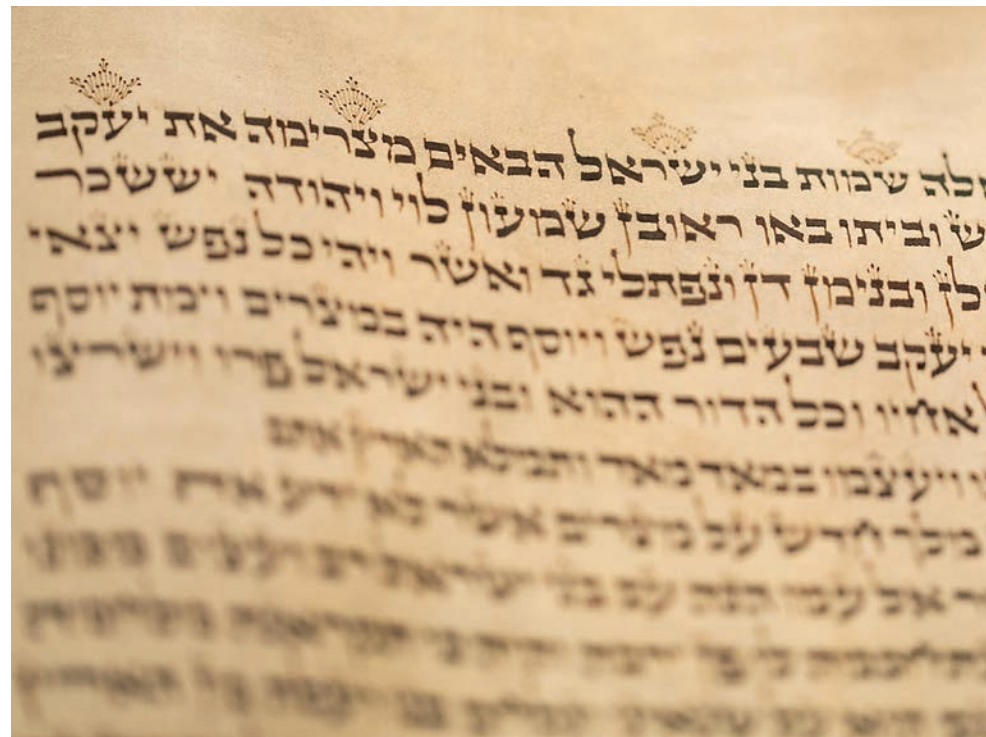 שמות בני ישראל הבאים מצרימה את יעקב
וביתו באו ראובן שמעון לוי ויהודה יששכר
ובנימן דן ונפתלי גד ואשר ויהי כל נפש יצאי
יעקב שבעים נפש ויוסף היה במצרים וימת יוסף
אחיו וכל הדור ההוא ובני ישראל פרו וישרצו
ויעצמו במאד מאד ותמלא הארץ אתם
מלך חדש על מצרים אשר לא ידע את יוסף
אל עמו הנה עם בני ישראל רב ועצום ממנו